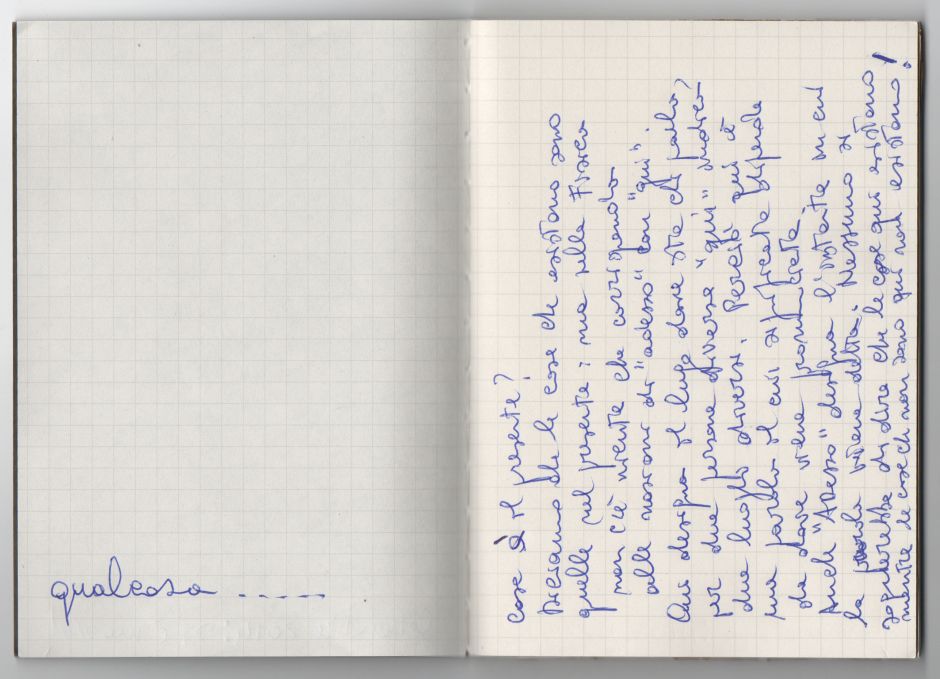 qualcosa .....
cose è il presente?
Diciamo che le cose che esistono sono
quelle nel presente: ma nella Fisica
non c'è niente che corrisponda
alla nozione di "adesso" con "qui"
Qui designa il luogo dove sta chi parla?
per due persone diverse "qui" indica
due luoghi diversi. Perciò qui è
una parola il cui significato dipende
da dove viene pronunciata.
Anche "Adesso" designa l'istante in cui
la parola viene detta. Nessuno si
sognerebbe di dire che le cose qui esistono
mentre le cose che non sono qui non esistono!